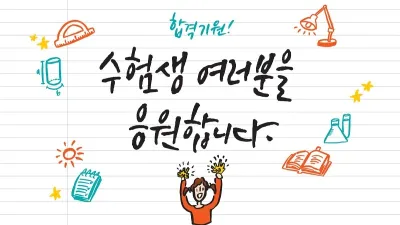 합격기원!
수험생 여러분을
응원합니다.